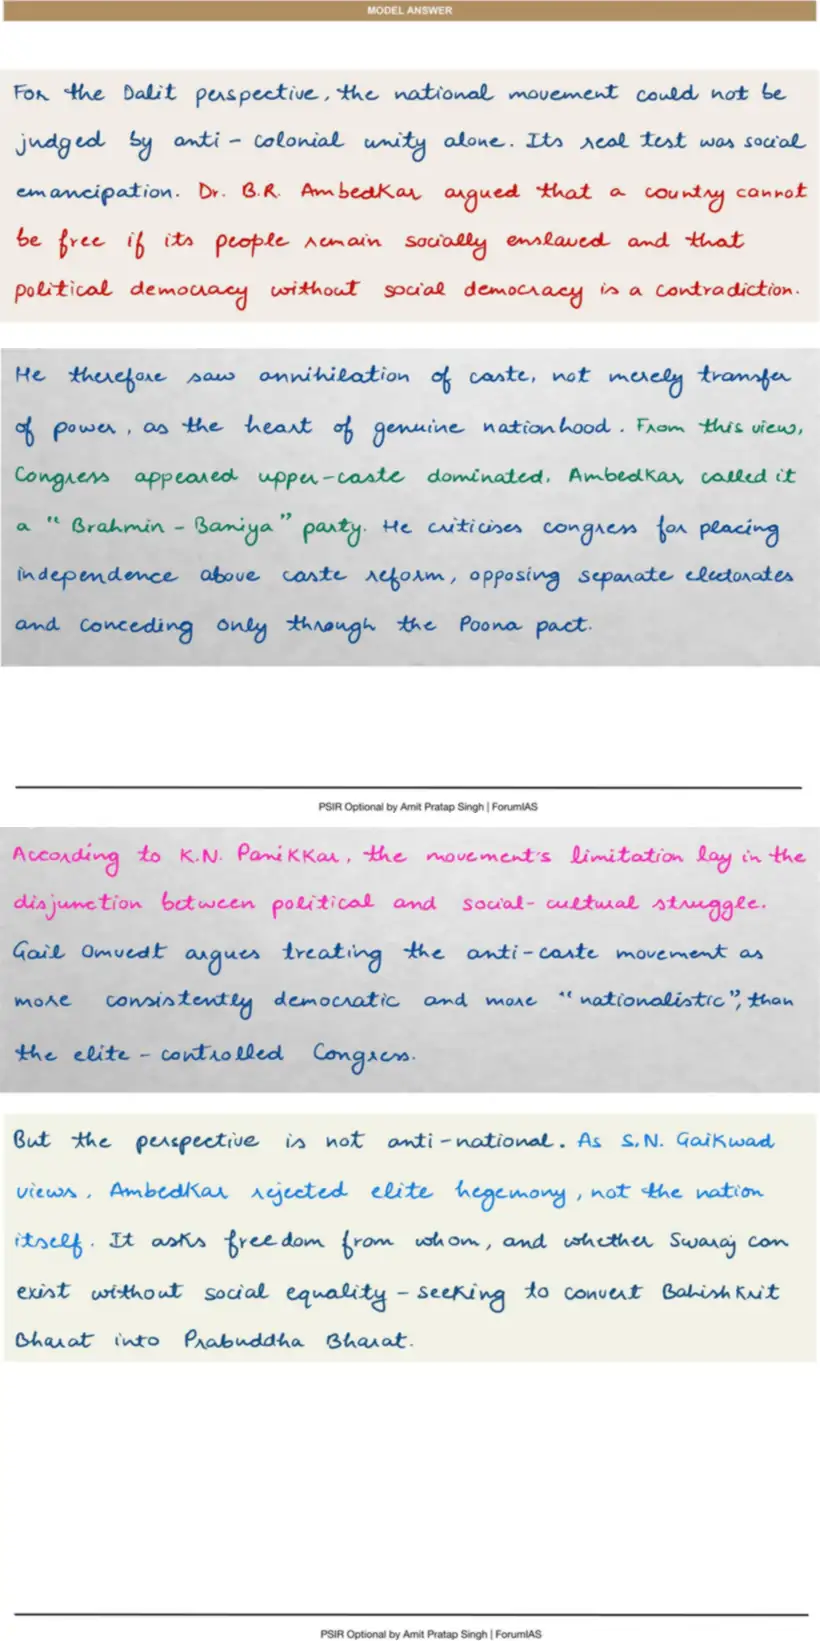 MODEL ANSWER
For the Dalit perspective, the national movement could not be
judged by anti - colonial unity alone. Its real test was social
emancipation. Dr. B.R. Ambedkar argued that a country cannot
be free if its people remain socially enslaved and that
political democracy without social democracy is a contradiction.
He therefore saw annihilation of caste, not merely transfer
of power, as the heart of genuine nationhood. From this view,
Congress appeared upper-caste dominated. Ambedkar called it
a "Brahmin - Baniya" party. He criticises congress for placing
independence above caste reform, opposing separate electorates
and conceding only through the Poona pact.
PSIR Optional by Amit Pratap Singh | ForumIAS
According to K.N. Panikkar, the movement's limitation lay in the
disjunction between political and social-cultural struggle.
Gail Omvedt argues treating the anti-caste movement as
more consistently democratic and more "nationalistic", than
the elite - controlled Congress.
But the perspective is not anti-national. As S.N. Gaikwad
views, Ambedkar rejected elite hegemony, not the nation
itself. It asks freedom from whom, and whether Swaraj can
exist without social equality - seeking to convert Bahishkrit
Bharat into Prabuddha Bharat.
PSIR Optional by Amit Pratap Singh | ForumIAS